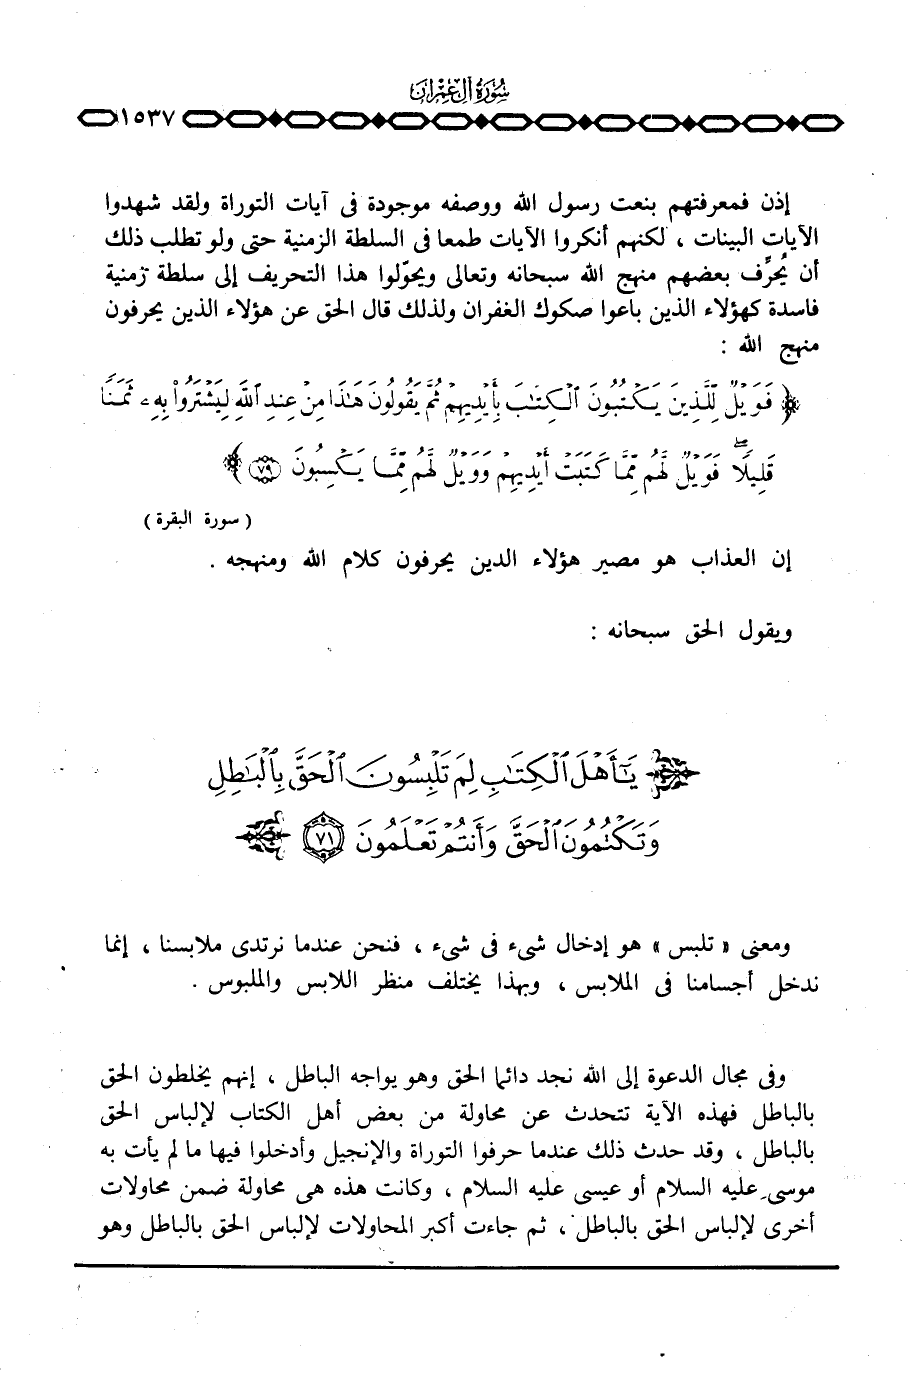 سُورَةُ آلِ عِمْرَانَ
١٥٣٧
إذن فمعرفتهم بنعت رسول الله ووصفه موجودة فى آيات التوراة ولقد شهدوا
الآيات البينات ، لكنهم أنكروا الآيات طمعا فى السلطة الزمنية حتى ولو تطلب ذلك
أن يُحرِّف بعضهم منهج الله سبحانه وتعالى ويحوّلوا هذا التحريف إلى سلطة زمنية
فاسدة كهؤلاء الذين باعوا صكوك الغفران ولذلك قال الحق عن هؤلاء الذين يحرفون
منهج الله :
﴿ فَوَيْلٌ لِّلَّذِينَ يَكْتُبُونَ ٱلْكِتَٰبَ بِأَيْدِيهِمْ ثُمَّ يَقُولُونَ هَٰذَا مِنْ عِندِ ٱللَّهِ لِيَشْتَرُوا۟ بِهِۦ ثَمَنًا
قَلِيلًا ۖ فَوَيْلٌ لَّهُم مِّمَّا كَتَبَتْ أَيْدِيهِمْ وَوَيْلٌ لَّهُم مِّمَّا يَكْسِبُونَ ٧٩ ﴾
( سورة البقرة )
إن العذاب هو مصير هؤلاء الدين يحرفون كلام الله ومنهجه .
ويقول الحق سبحانه :
يَٰٓأَهْلَ ٱلْكِتَٰبِ لِمَ تَلْبِسُونَ ٱلْحَقَّ بِٱلْبَٰطِلِ
وَتَكْتُمُونَ ٱلْحَقَّ وَأَنتُمْ تَعْلَمُونَ ٧١
ومعنى « تلبس » هو إدخال شىء فى شىء ، فنحن عندما نرتدى ملابسنا ، إنما
ندخل أجسامنا فى الملابس ، وبهذا يختلف منظر اللابس والملبوس .
وفى مجال الدعوة إلى الله نجد دائما الحق وهو يواجه الباطل ، إنهم يخلطون الحق
بالباطل فهذه الآية تتحدث عن محاولة من بعض أهل الكتاب لإلباس الحق
بالباطل ، وقد حدث ذلك عندما حرفوا التوراة والإنجيل وأدخلوا فيها ما لم يأت به
موسى عليه السلام أو عيسى عليه السلام ، وكانت هذه هى محاولة ضمن محاولات
أخرى لإلباس الحق بالباطل ، ثم جاءت أكبر المحاولات لإلباس الحق بالباطل وهو